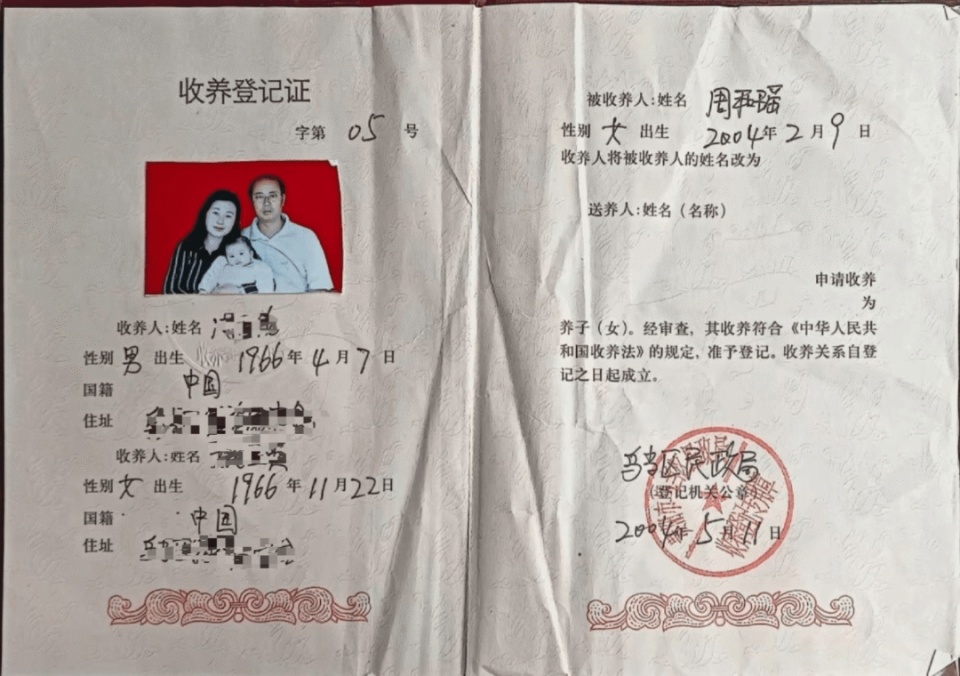 收养登记证
字第 05 号
收养人:姓名
性别 男 出生 1966 年 4 月 7 日
国籍 中国
住址
收养人:姓名
性别 女 出生 1966 年 11 月 22 日
国籍 中国
住址
被收养人:姓名 周
性别 女 出生 2004 年 2 月 9 日
收养人将被收养人的姓名改为
送养人:姓名(名称)
申请收养
为
养子(女)。经审查,其收养符合《中华人民共
和国收养法》的规定,准予登记。收养关系自登
记之日起成立。
乌当区民政局
(登记机关公章)
2004 年 5 月 11 日